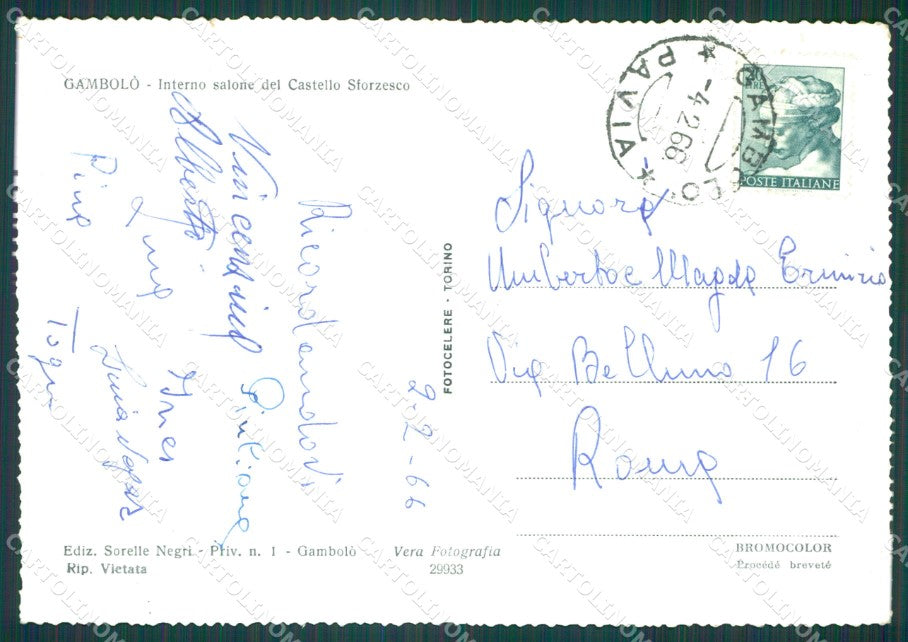 GAMBOLÒ - Interno salone del Castello Sforzesco
Ricordandovi
Vincenzina Giuliana
Alberto
Ines
Pino
2-2-66
FOTOCELERE - TORINO
GAMBOLO'
* PAVIA *
-4.2.66
POSTE ITALIANE
Umberto e Magda Erminio
Via Belluno 16
Roma
Ediz. Sorelle Negri - Priv. n. 1 - Gambolò
Rip. Vietata
Vera Fotografia
29933
BROMOCOLOR
Procédé breveté
CARTOLINOMANIA